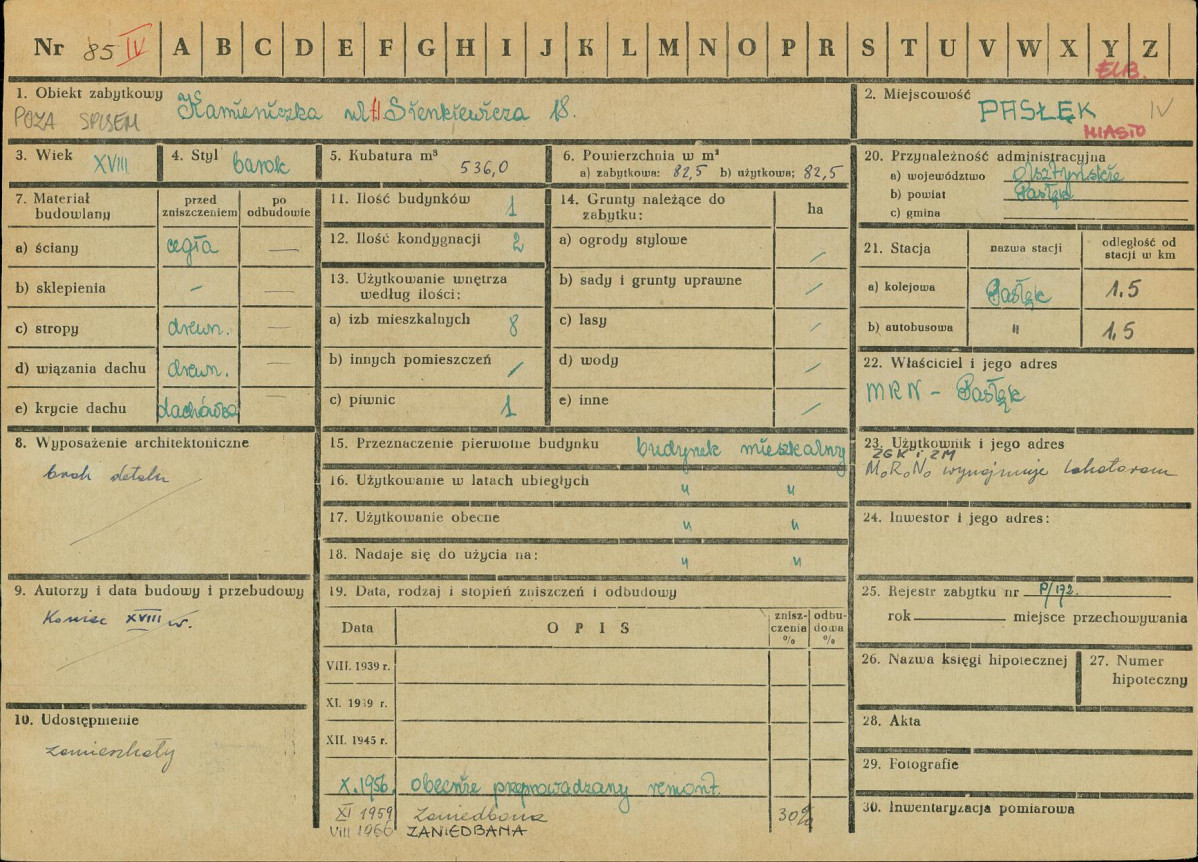 Nr 85 IV A B C D E F G H I J K L M N O P R S T U V W X Y Z
ELB.
1. Obiekt zabytkowy Kamieniczka ul. Sienkiewicza 18.
POZA SPISEM
2. Miejscowość PASŁĘK IV
MIASTO
3. Wiek XVIII
4. Styl barok
5. Kubatura m³ 536,0
6. Powierzchnia w m²
a) zabytkowa: 82,5 b) użytkowa; 82,5
20. Przynależność administracyjna
a) województwo olsztyńskie
b) powiat Pasłęk
c) gmina
7. Materiał budowlany
przed zniszczeniem
po odbudowie
a) ściany cegła —
b) sklepienia -
c) stropy drewn. —
d) wiązania dachu drewn. —
e) krycie dachu dachówka —
11. Ilość budynków 1
12. Ilość kondygnacji 2
13. Użytkowanie wnętrza
według ilości:
a) izb mieszkalnych 8
b) innych pomieszczeń /
c) piwnic 1
14. Grunty należące do
zabytku: ha
a) ogrody stylowe /
b) sady i grunty uprawne /
c) lasy /
d) wody /
e) inne /
21. Stacja
nazwa stacji
odległość od
stacji w km
a) kolejowa Pasłęk 1,5
b) autobusowa " 1,5
22. Właściciel i jego adres
MRN - Pasłęk
8. Wyposażenie architektoniczne
brak detalu
15. Przeznaczenie pierwotne budynku budynek mieszkalny
16. Użytkowanie w latach ubiegłych " "
17. Użytkowanie obecne " "
18. Nadaje się do użycia na: " "
23. Użytkownik i jego adres
ZGK i ZM
M.R.N. wynajmuje lokatorom
24. Inwestor i jego adres:
9. Autorzy i data budowy i przebudowy
Koniec XVIII w.
10. Udostępnienie
zamieszkały
19. Data, rodzaj i stopień zniszczeń i odbudowy
Data
OPIS
znisz-
czenia
%
odbu-
dowa
%
VIII. 1939 r.
XI. 1939 r.
XII. 1945 r.
X. 1956. obecnie przeprowadzany remont.
XI 1959 Zaniedbana 30%
VIII 1966 ZANIEDBANA
25. Rejestr zabytku nr P/172.
rok miejsce przechowywania
26. Nazwa księgi hipotecznej
27. Numer
hipoteczny
28. Akta
29. Fotografie
30. Inwentaryzacja pomiarowa